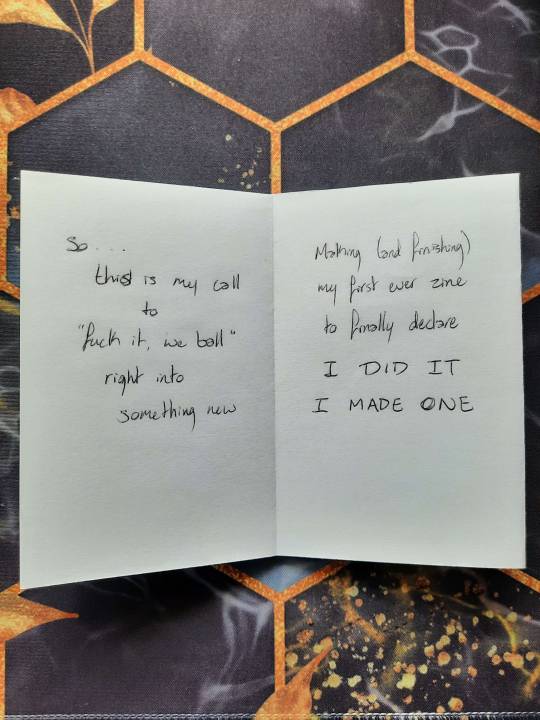 So...
this is my call
to
"fuck it, we ball"
right into
something new
Making (and finishing)
my first ever zine
to finally declare
I DID IT
I MADE ONE